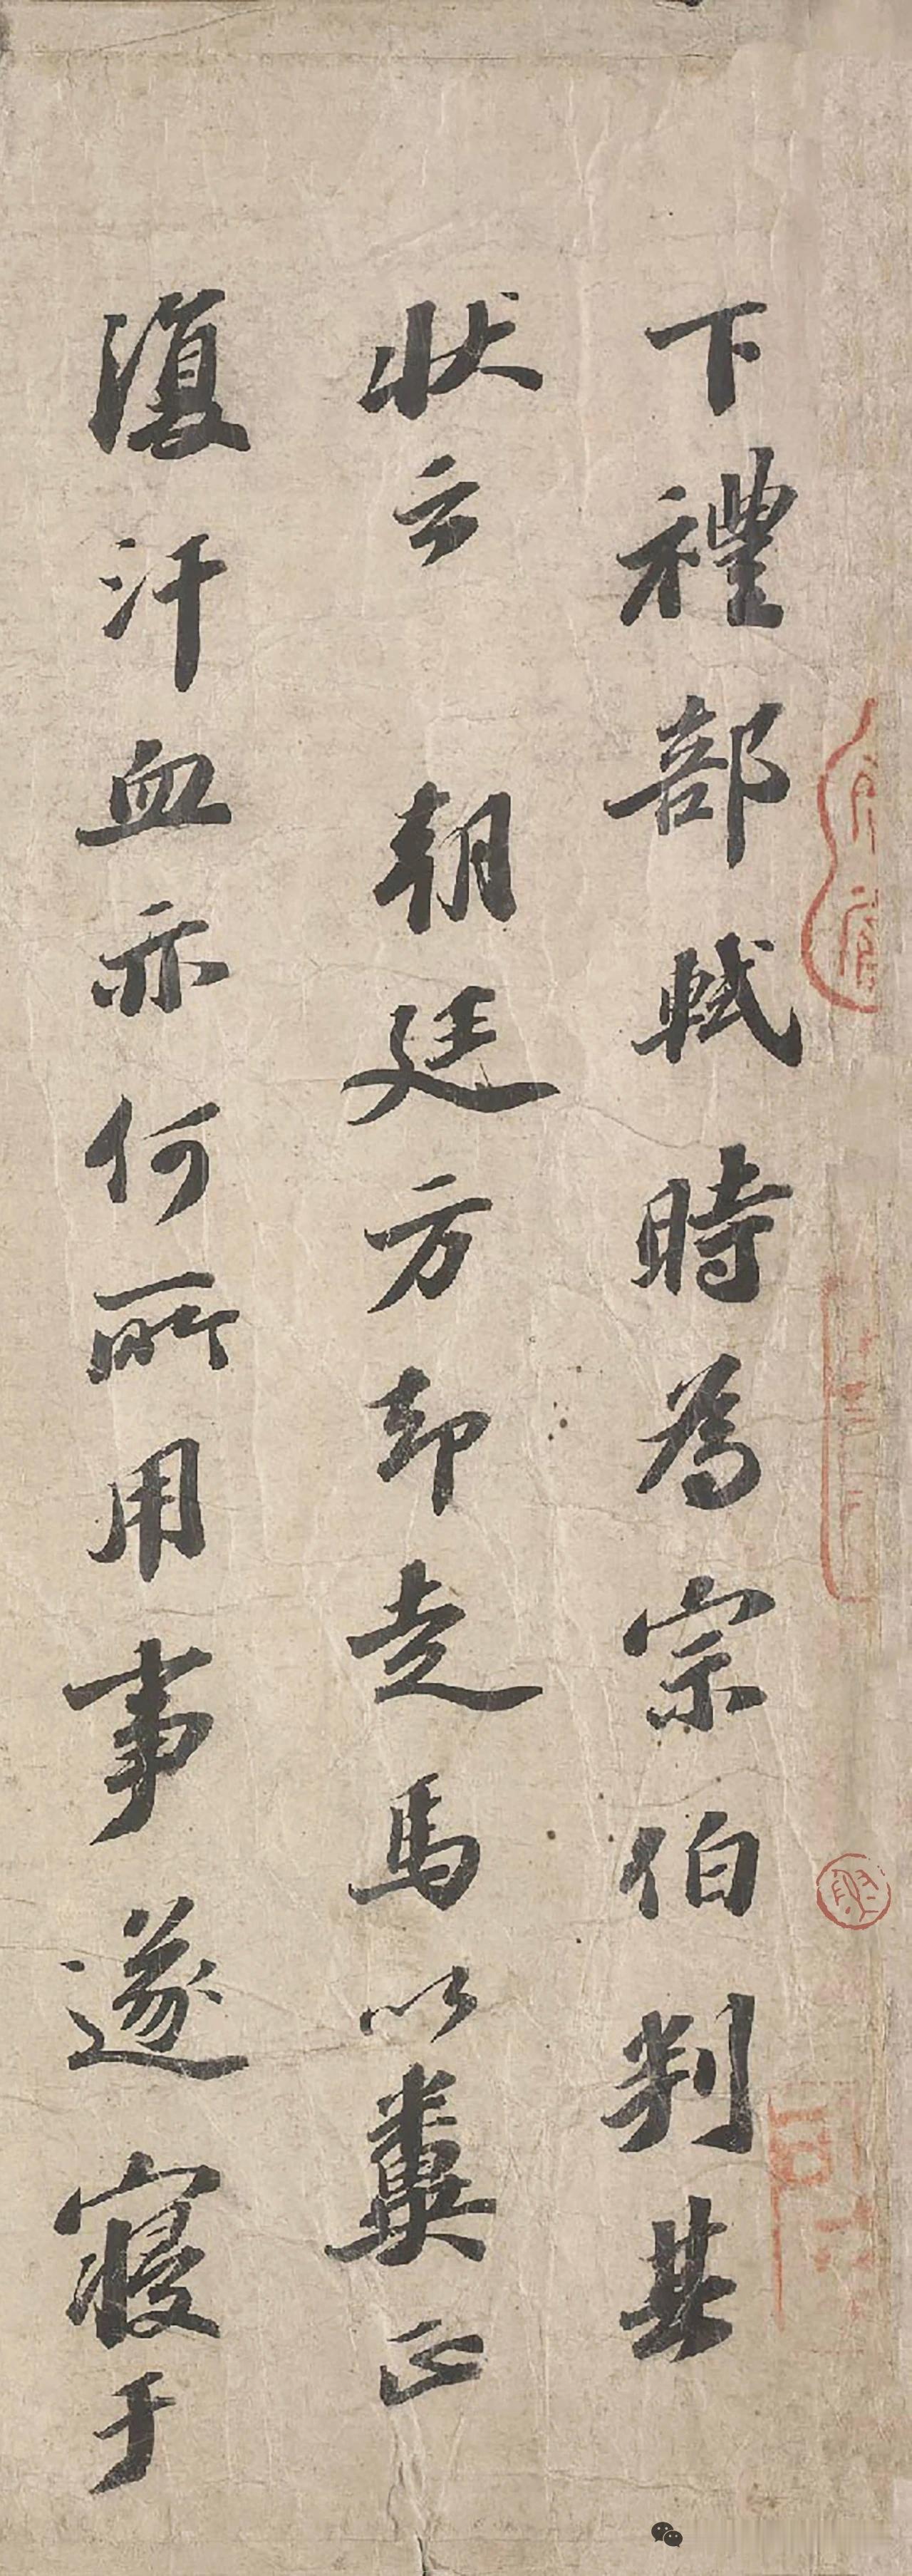 下禮部軾時為宗伯判其
狀云朝廷方却走馬以糞正
復汗血亦何所用事遂寢于